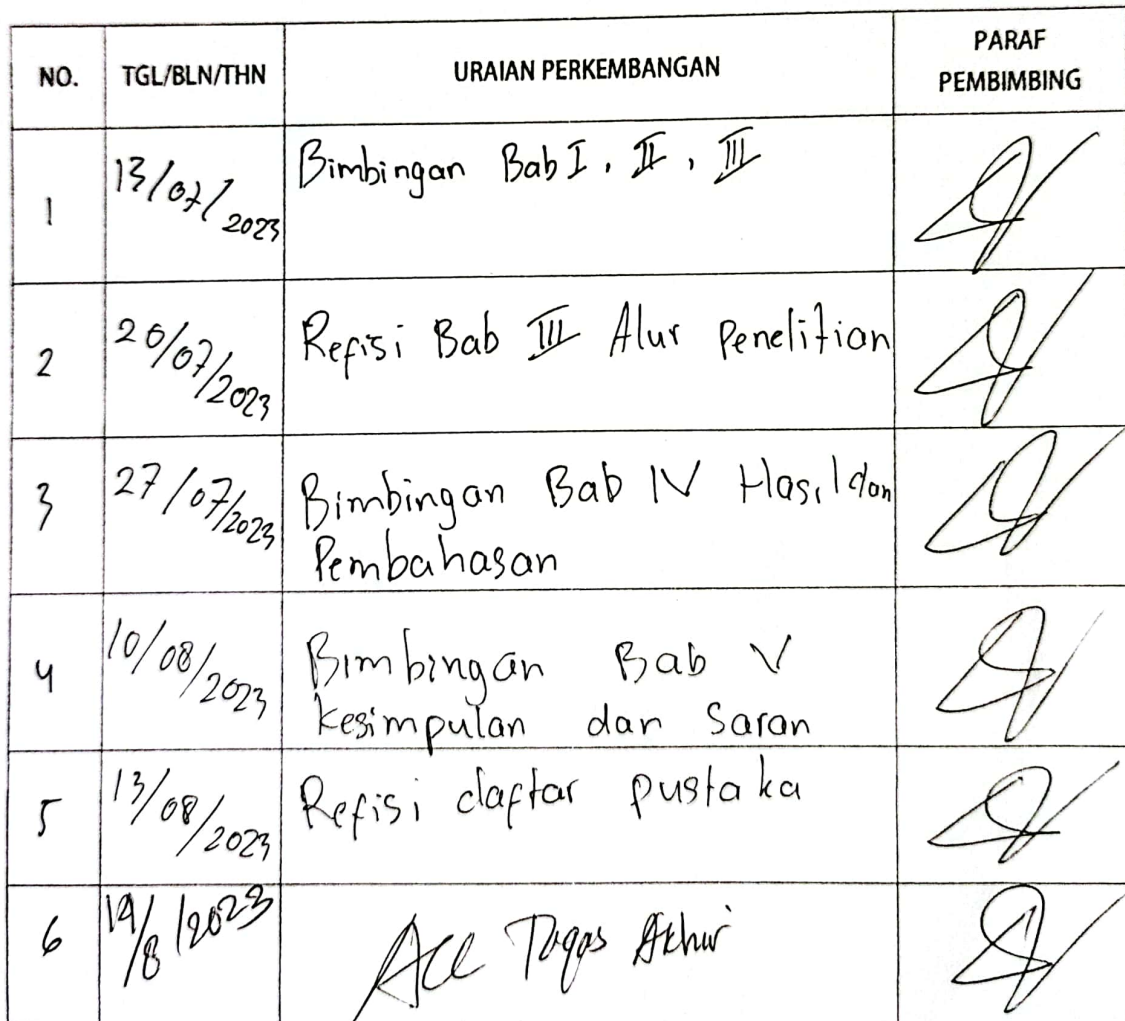 NO. TGL/BLN/THN URAIAN PERKEMBANGAN PARAF
PEMBIMBING
1 13/07/2023 Bimbingan Bab I, II, III
2 20/07/2023 Refisi Bab III Alur Penelitian
3 27/07/2023 Bimbingan Bab IV Hasil dan
Pembahasan
4 10/08/2023 Bimbingan Bab V
kesimpulan dan Saran
5 13/08/2023 Refisi daftar pustaka
6 /8/2023 Acc Tugas Akhir